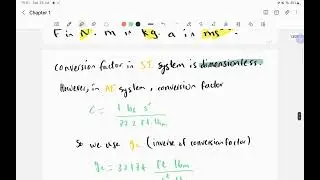 Chapter 1
F in N. m in kg. a in ms⁻².
conversion factor in SI system is dimensionless.
However, in AE system, conversion factor
C = 1 lbf s² / 32.2 ft lbm
So we use gc (inverse of conversion factor)
gc = 32.174 ft lbm / s²